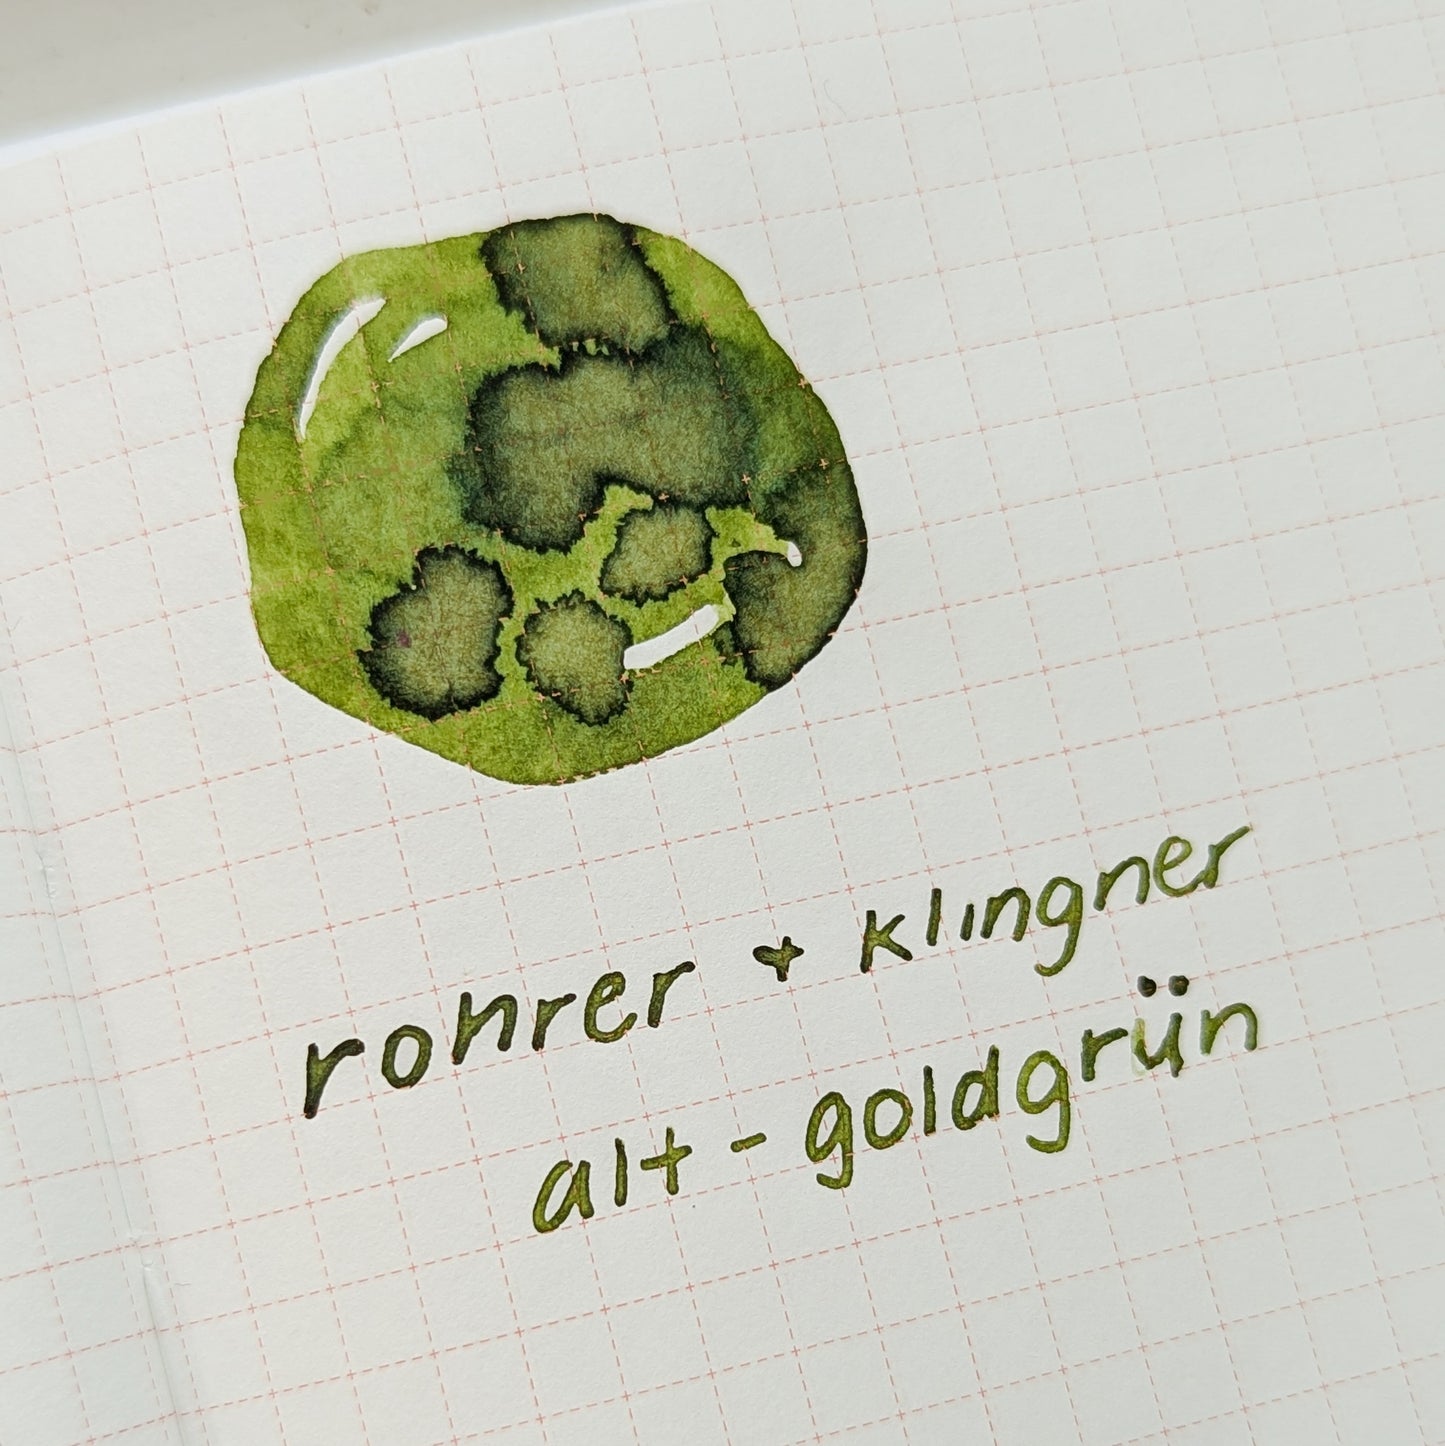 rohrer + klingner
alt-goldgrün